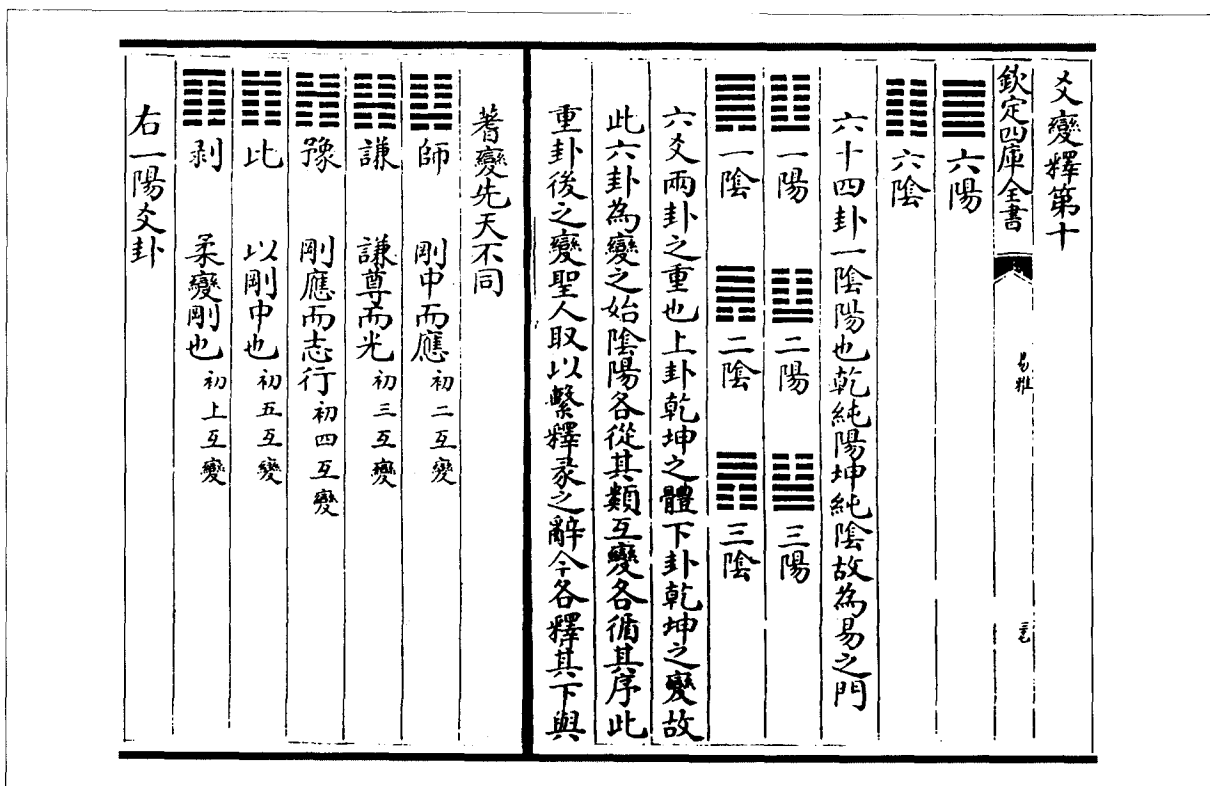 爻變釋第十
欽定四庫全書
易雅
六陽
六陰
六十四卦一陰陽也乾純陽坤純陰故為易之門
一陽 二陽 三陽
一陰 二陰 三陰
六爻兩卦之重也上卦乾坤之體下卦乾坤之變故
此六卦為變之始陰陽各從其類互變各循其序此
重卦後之變聖人取以繫釋彖之辭今各釋其下與
蓍變先天不同
師 剛中而應初二互變
謙 謙尊而光初三互變
豫 剛應而志行初四互變
比 以剛中也初五互變
剥 柔變剛也初上互變
右一陽爻卦